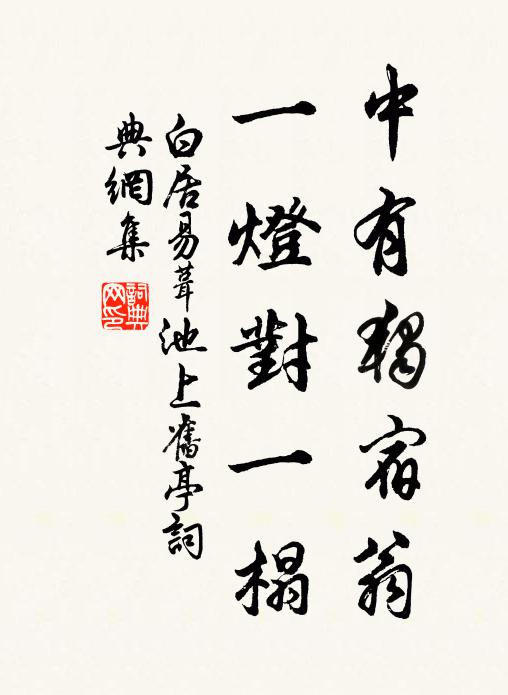 中有獨宿翁
一燈對一榻
白居易葺池上舊亭詞
典網集
詞典
网印